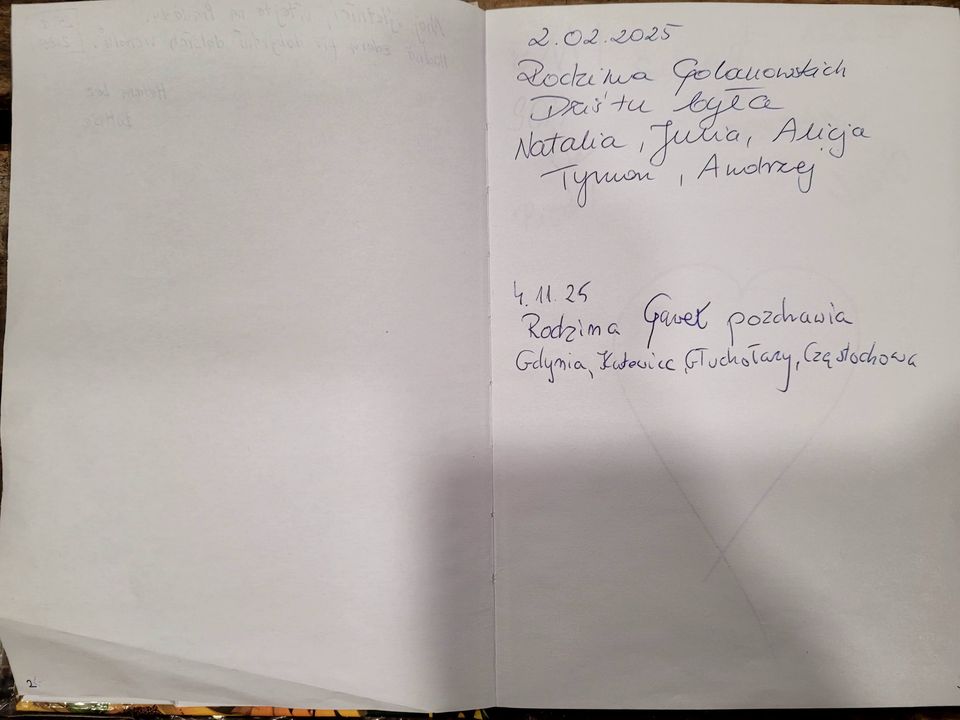 2.02.2025
Rodzina Golanowskich
Dziś tu była
Natalia, Julia, Alicja
Tymon, Andrzej
4.11.25
Rodzina Gaweł pozdrawia
Gdynia, Katowice, Głuchołazy, Częstochowa
2